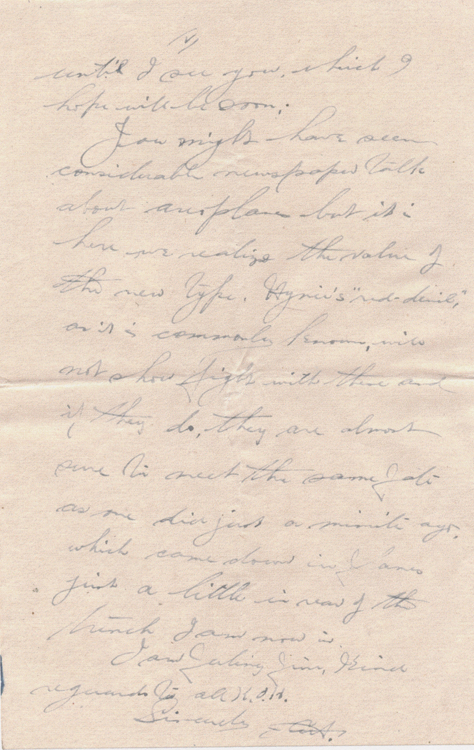 until I see you, which I
hope will be soon.
You might have seen
considerable newspaper talk
about aeroplanes but it is
here we realize the value of
the new type. "red-devil",
as it is commonly known, will
not show fight with these and
if they do, they are almost
sure to meet the same fate
as one did just a minite ago,
which came down in flames
just a little in rear of the
trench I am now in.
I am feeling fine, Kind
reguards to all
Sincerely